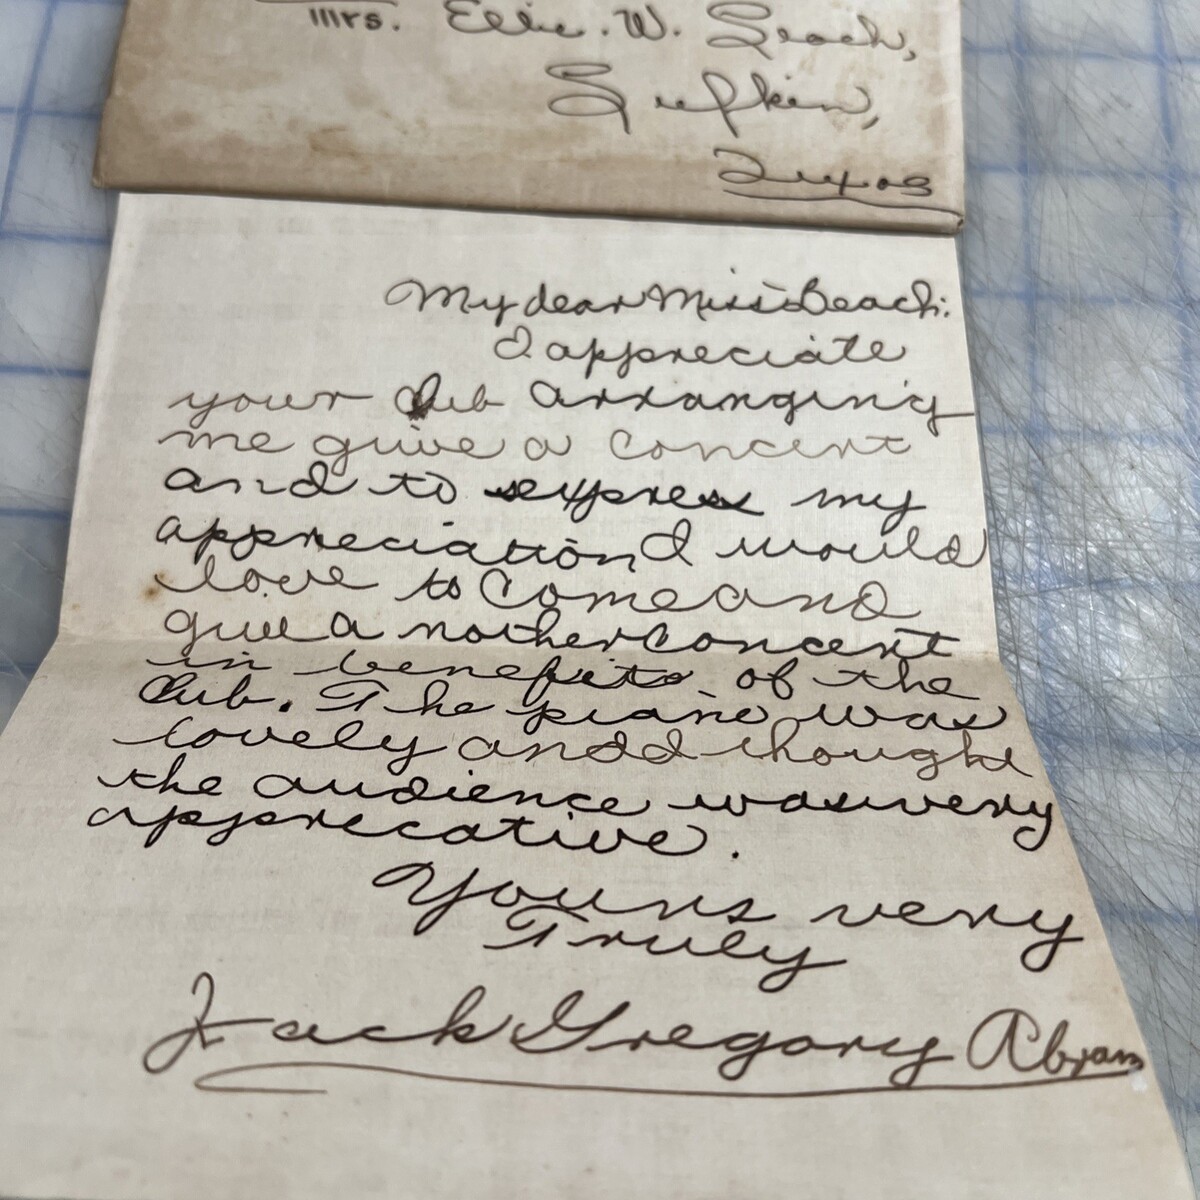 Mrs. Ellie. W. Beach,
Lufkin,
Texas
My dear Miss Beach:
I appreciate
your club arranging
me give a concert
and to express my
appreciation I would
love to come and
give another concert
in benefits of the
club. The piano was
lovely and I thought
the audience was very
apprecative.
Yours very
Truly
Jack Gregory Abram